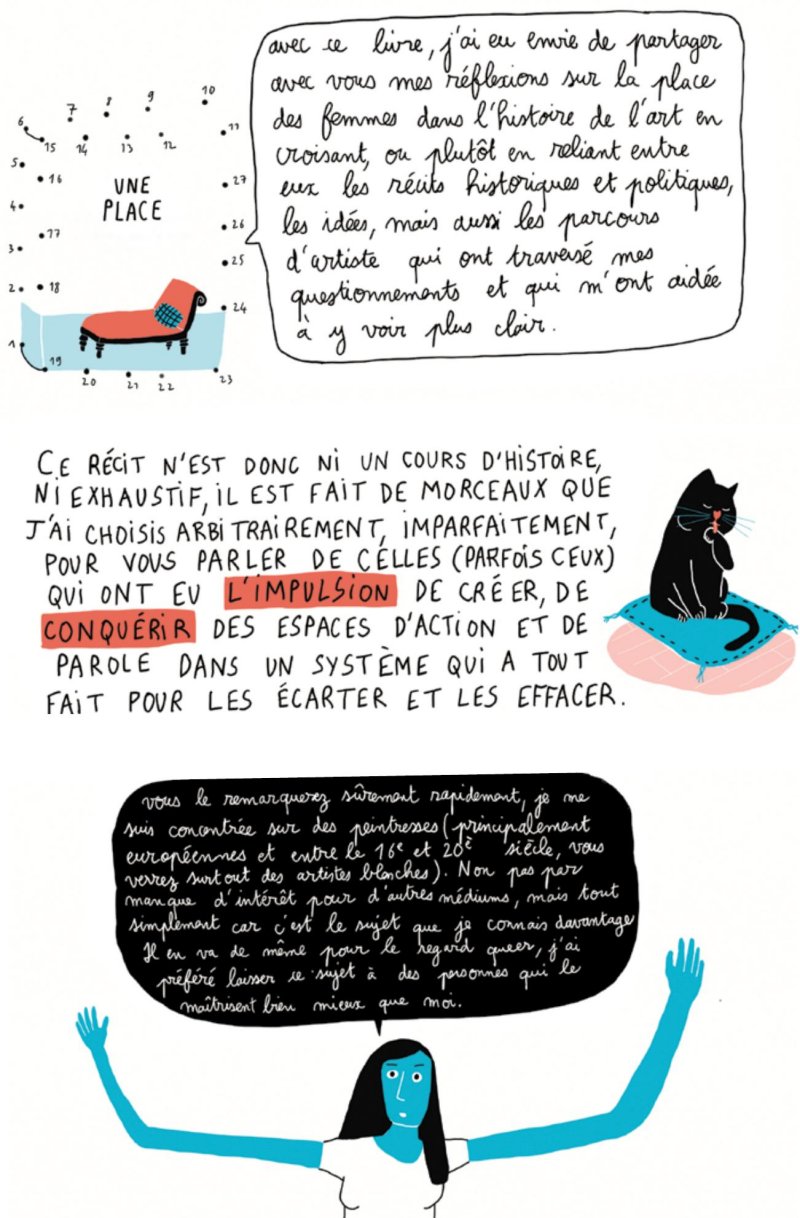 avec ce livre, j'ai eu envie de partager
avec vous mes réflexions sur la place
des femmes dans l'histoire de l'art en
croisant, ou plutôt en reliant entre
eux les récits historiques et politiques,
les idées, mais aussi les parcours
d'artiste qui ont traversé mes
questionnements et qui m'ont aidée
à y voir plus clair.
10
9
8
7
6
11
15
14
13
12
5
16
27
UNE
PLACE
4
26
17
3
25
2
18
24
1
19
20
21
22
23
CE RÉCIT N'EST DONC NI UN COURS D'HISTOIRE,
NI EXHAUSTIF, IL EST FAIT DE MORCEAUX QUE
J'AI CHOISIS ARBITRAIREMENT, IMPARFAITEMENT,
POUR VOUS PARLER DE CELLES (PARFOIS CEUX)
QUI ONT EU L'IMPULSION DE CRÉER, DE
CONQUÉRIR DES ESPACES D'ACTION ET DE
PAROLE DANS UN SYSTÈME QUI A TOUT
FAIT POUR LES ÉCARTER ET LES EFFACER.
vous le remarquerez sûrement rapidement, je me
suis concentrée sur des peintresses (principalement
européennes et entre le 16e et 20è siècle, vous
verrez surtout des artistes blanches). Non pas par
manque d'intérêt pour d'autres médiums, mais tout
simplement car c'est le sujet que je connais davantage
Il en va de même pour le regard queer, j'ai
préféré laisser ce sujet à des personnes qui le
maîtrisent bien mieux que moi.